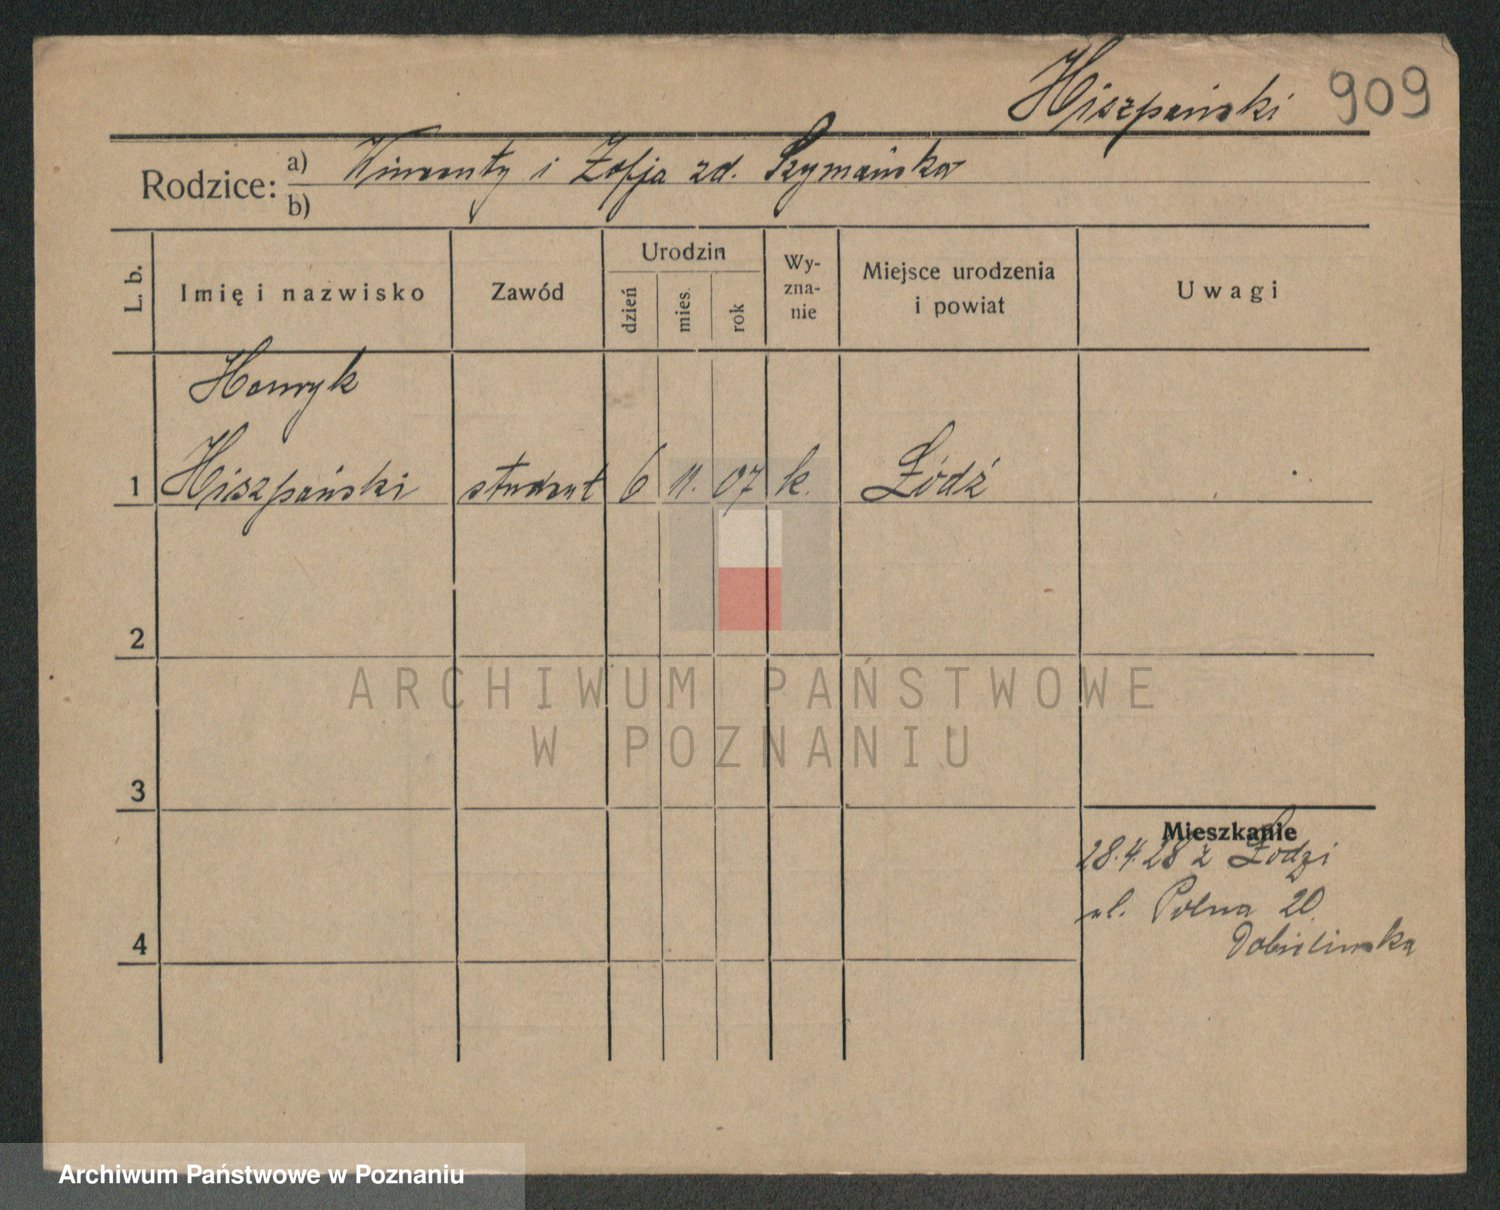 Hiszpański 909
Rodzice: a) Wincenty i Zofja zd. Szymańska
b)
L. b.
Imię i nazwisko
Zawód
Urodzin
dzień
mies.
rok
Wy-
zna-
nie
Miejsce urodzenia
i powiat
Uwagi
Henryk
1 Hiszpański student 6 11. 07 k. Łódź
2
3
4
Mieszkanie
28.4.28 z Łodzi
ul. Polna 20.
ARCHIWUM PAŃSTWOWE
W POZNANIU
Archiwum Państwowe w Poznaniu